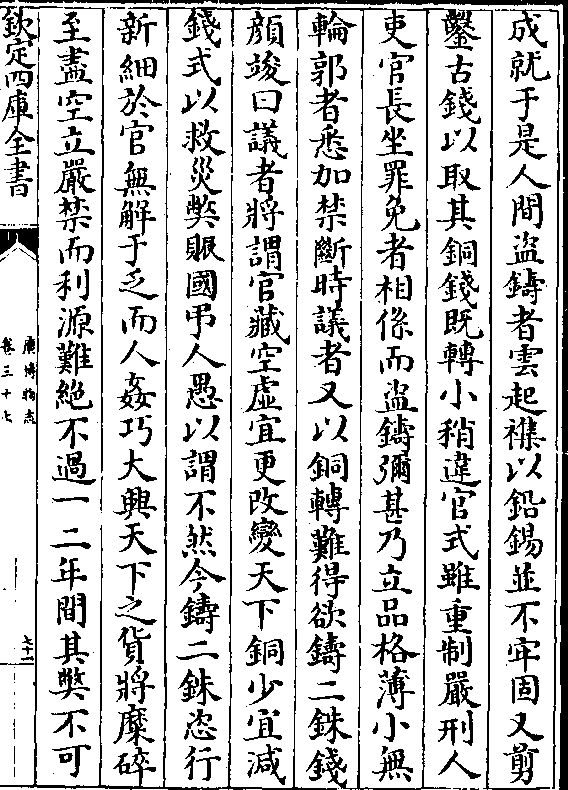 成就于是人間盜鑄者雲起襍以鉛錫並不牢固又剪
鑿古錢以取其銅錢既轉小稍違官式雖重制嚴刑人
吏官長坐罪免者相係而盜鑄彌甚乃立品格薄小無
輪郭者悉加禁斷時議者又以銅轉難得欲鑄二銖錢
顔竣曰議者將謂官藏空虛宜更改變天下銅少宜減
錢式以救災弊賑國弔人愚以謂不然今鑄二銖恣行
新細於官無解于乏而人姦巧大興天下之貨將糜碎
至盡空立嚴禁而利源難絶不過一二年間其弊不可
欽定四庫全書
廣博物志
卷三十七
七十一